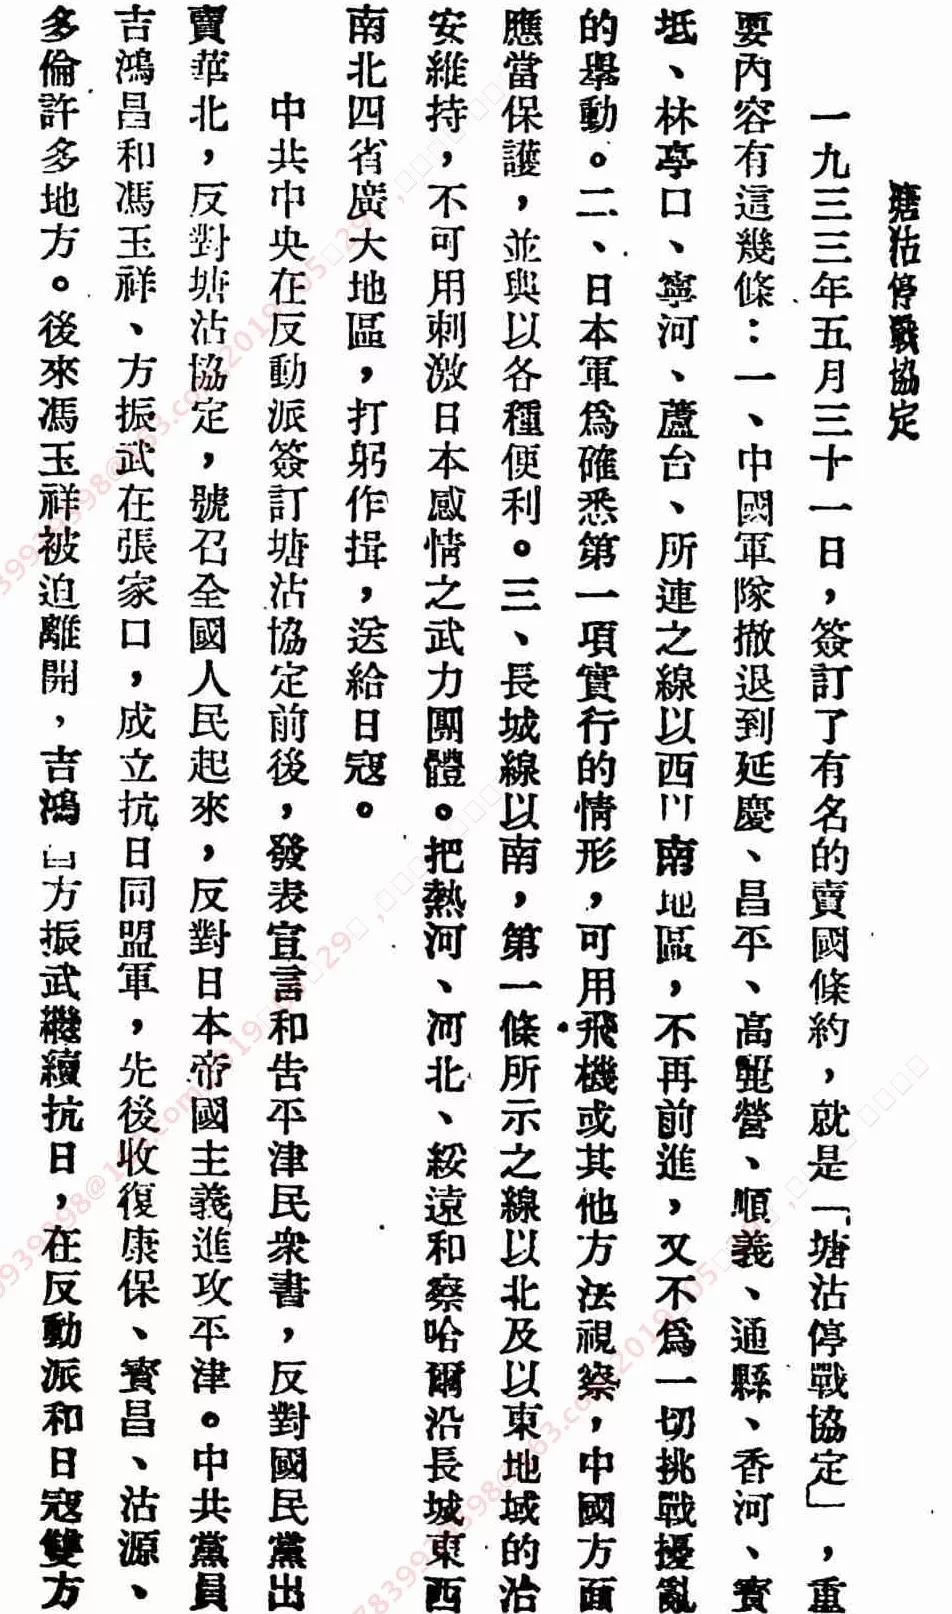 塘沽停戰協定
一九三三年五月三十一日，簽訂了有名的賣國條約，就是「塘沽停戰協定」，重
要內容有這幾條：一、中國軍隊撤退到延慶、昌平、高麗營、順義、通縣、香河、寶
坻、林亭口、寧河、蘆台、所連之線以西以南地區，不再前進，又不爲一切挑戰擾亂
的舉動。二、日本軍爲確悉第一項實行的情形，可用飛機或其他方法視察，中國方面
應當保護，並與以各種便利。三、長城線以南，第一條所示之線以北及以東地域的治
安維持，不可用刺激日本感情之武力團體。把熱河、河北、綏遠和察哈爾沿長城東西
南北四省廣大地區，打躬作揖，送給日寇。
中共中央在反動派簽訂塘沽協定前後，發表宣言和告平津民衆書，反對國民黨出
賣華北，反對塘沽協定，號召全國人民起來，反對日本帝國主義進攻平津。中共黨員
吉鴻昌和馮玉祥、方振武在張家口，成立抗日同盟軍，先後收復康保、寳昌、沽源、
多倫許多地方。後來馮玉祥被迫離開，吉鴻昌方振武繼續抗日，在反動派和日寇雙方